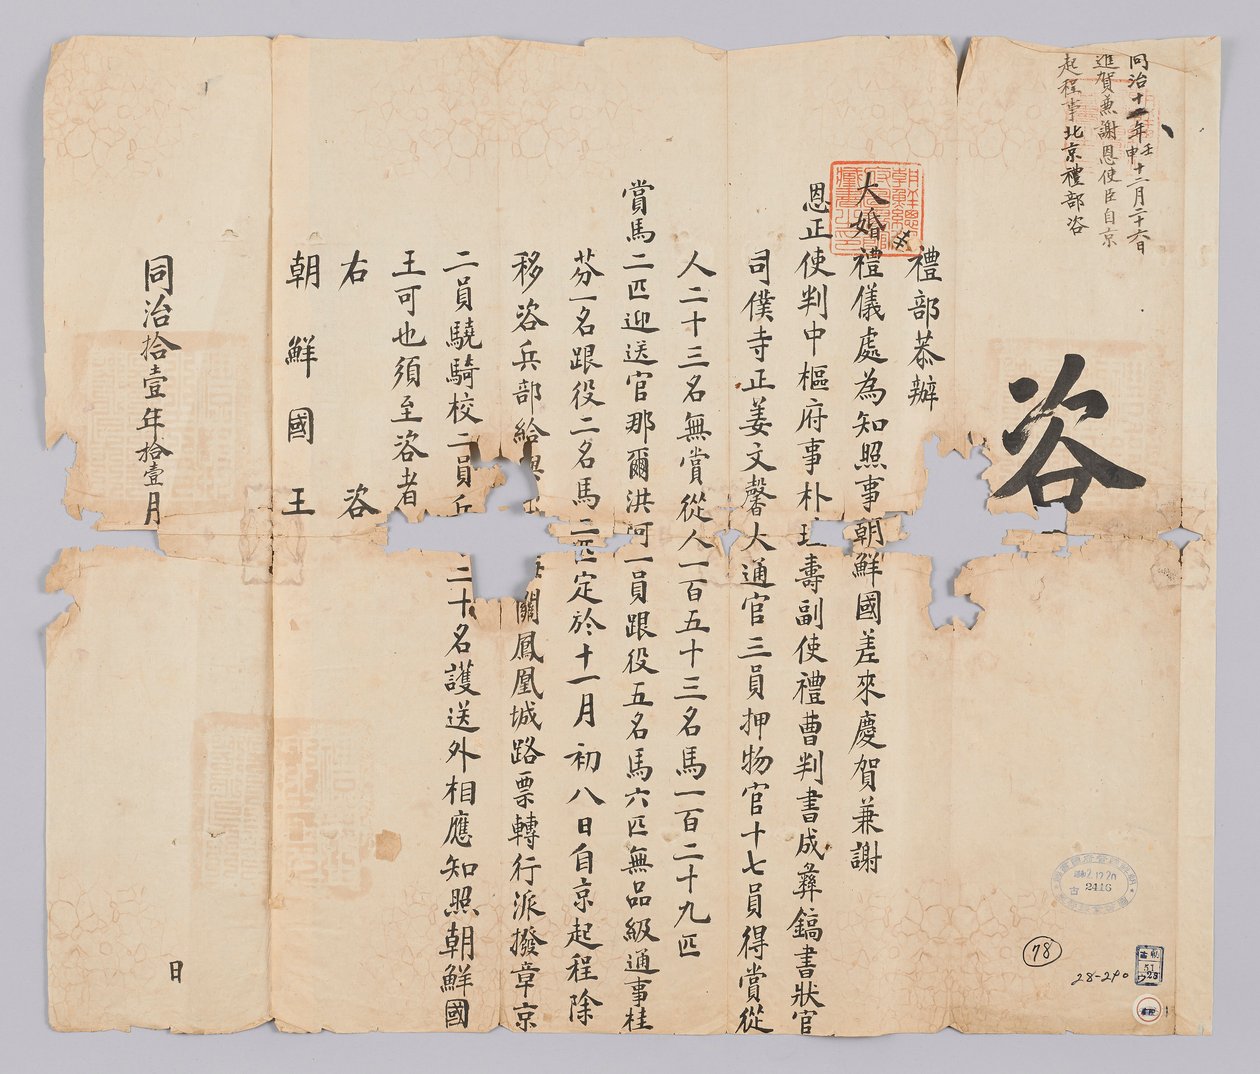 同治十一年壬申十二月二十六日
進賀兼謝恩使臣自京
起程事北京禮部咨
咨
禮部恭辦
大婚禮儀處為知照事朝鮮國差來慶賀兼謝
恩正使判中樞府事朴珪壽副使禮曹判書成彝鎬書狀官
司僕寺正姜文馨大通官三員押物官十七員得賞從
人二十三名無賞從人一百五十三名馬一百二十九匹
賞馬二匹迎送官那爾洪阿一員跟役五名馬六匹無品級通事桂
芬一名跟役二名馬二匹定於十一月初八日自京起程除
移咨兵部給與 關鳳凰城路票轉行派撥章京
二員驍騎校二員兵二十名護送外相應知照朝鮮國
王可也須至咨者
右咨
朝鮮國王
同治拾壹年拾壹月 日
2416
古
78
28-290